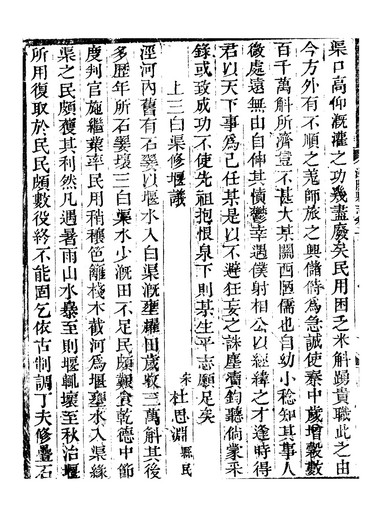 渠口高仰溉灌之功幾盡廢矣民用困乏米斛踴貴職此之由
今方外有不順之羌師旅之興儲偫為急誠使秦中歲增穀數
百千萬斛所濟豈不甚大某關西陋儒也自幼小稔知其事人
微處遠無由自伸其憤鬱幸遇僕射相公以經緯之才逢時得
君以天下事為己任某是以不避狂妄之誅塵瀆鈞聽倘蒙采
錄或致成功不使先祖抱恨泉下則某生平志願足矣
上三白渠修堰議
宋杜思淵縣民
涇河內舊有石翣以堰水入白渠溉雍櫂田歲收三萬斛其後
多歷年所石翣壞三白渠水少溉田不足民頗艱食乾德中節
度判官施繼業率民用稍穰笆籬棧木截河為堰壅水入渠緣
渠之民頗獲其利然凡遇暑雨山水暴至則堰輒壞至秋治堰
所用復取於民民頗數役終不能固乞依古制調丁夫修疊石